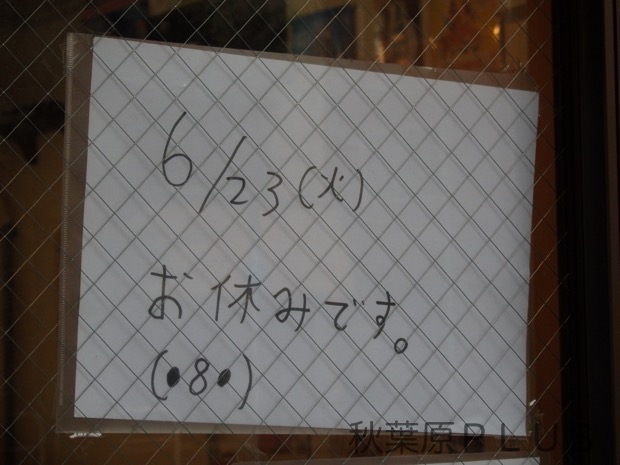 6/23(火)
お休みです。
(•8•)
秋葉原PLUS